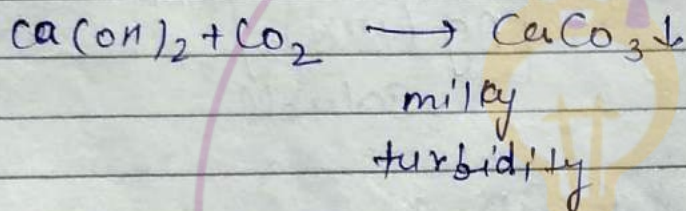 Ca(OH)₂ + CO₂ ⟶ CaCO₃↓
milky
turbidity